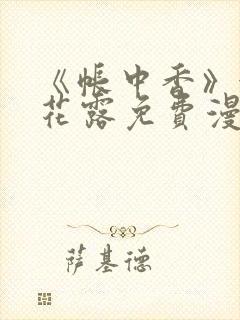 《帐中香》
花露免费漫
萨基德